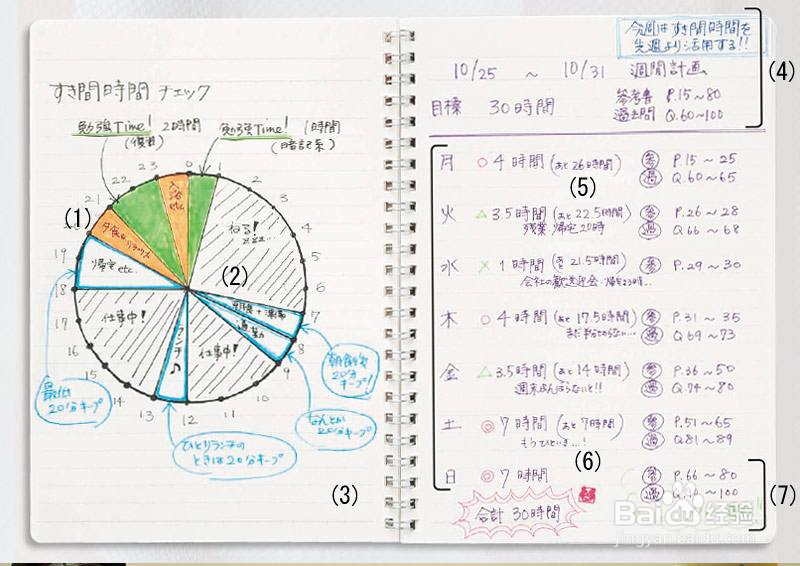 すき間時間チェック
勉強Time! 2時間
(復習)
勉強Time! 1時間
(暗記系)
23 0 1
22 2
21 3
4
19 5
18 6
17 7
16 8
15 9
14 10
13 12 11
入浴etc.
ねる!
zzz...
夕食&リラックス
帰宅etc.
仕事中!
ランチ♪
仕事中!
通勤
朝食+準備
最低
20分キープ
朝食後
20分
キープ!
なんとか
20分キープ
ひとりランチの
ときは20分キープ
(1)
(2)
(3)
今週はすき間時間を
先週より活用する!!
10/25 ~ 10/31 週間計画
目標 30時間
参考書 P.15~80
過去問 Q.60~100
(4)
月 ○ 4時間(あと26時間) 参 P.15~25
過 Q.60~65
(5)
火 △ 3.5時間(あと22.5時間) 参 P.26~28
残業 帰宅20時 過 Q.66~68
水 × 1時間(あと21.5時間) 参 P.29~30
会社の歓送迎会
木 ○ 4時間(あと17.5時間) 参 P.31~35
過 Q.69~73
金 △ 3.5時間(あと14時間) 参 P.36~50
週末がんばらないと!! 過 Q.74~80
土 ◎ 7時間(あと7時間) 参 P.51~65
もうひといき…! 過 Q.81~89
(6)
日 ◎ 7時間 参 P.66~80
過 Q.90~100
合計 30時間
(7)
Baidu经验
jingyan.baidu.com